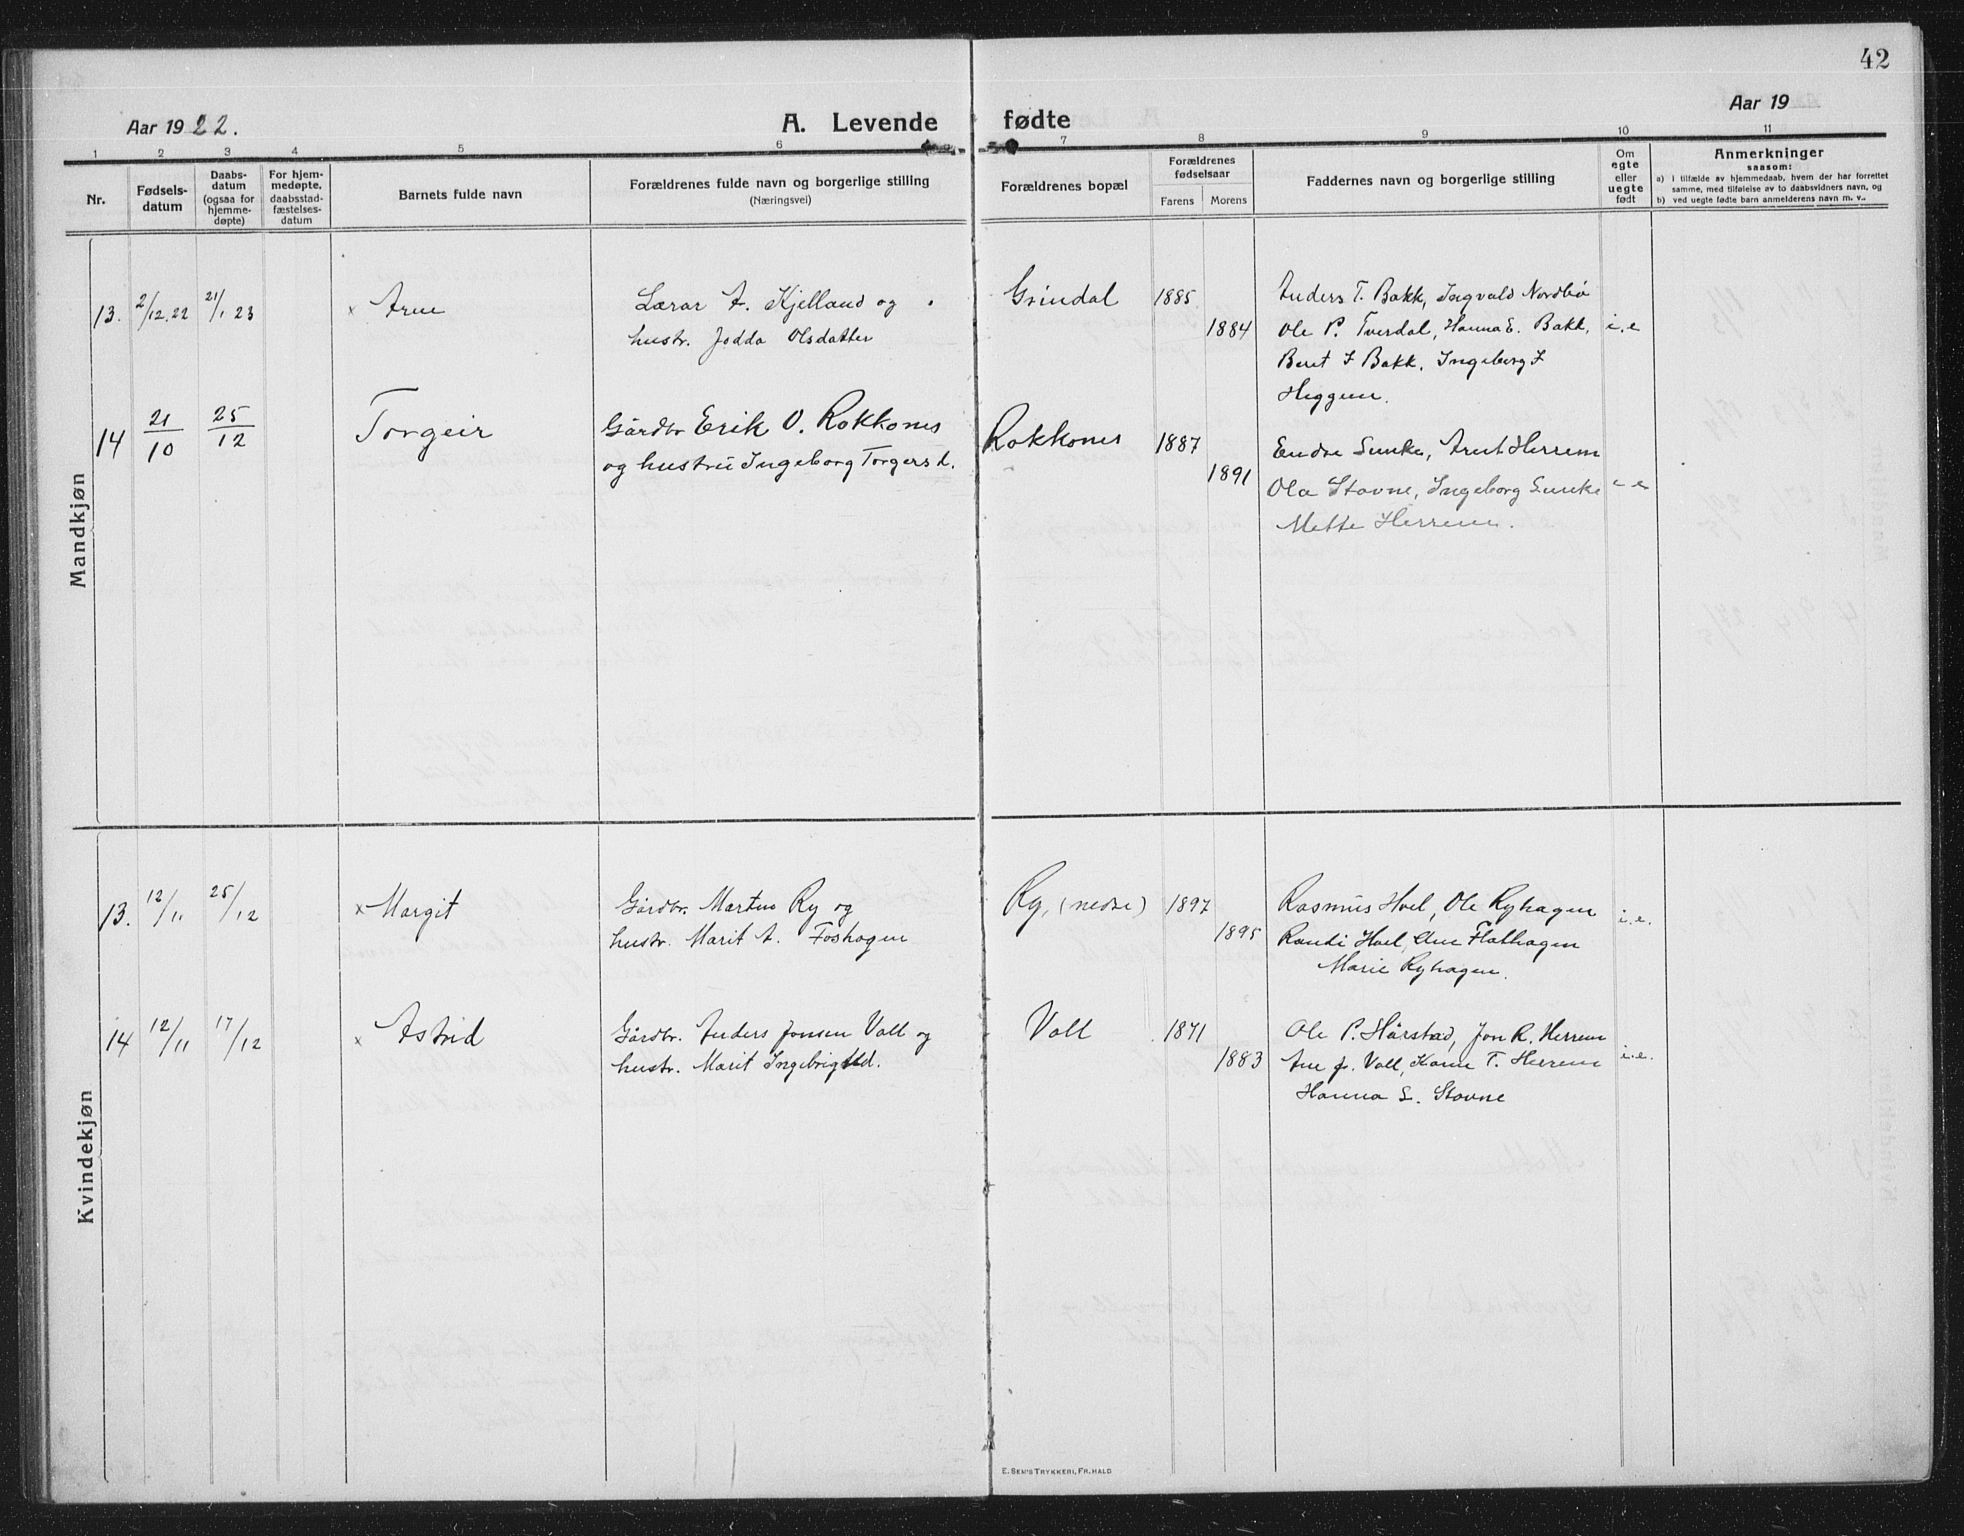 42
Aar 1922.
A. Levende fødte
Aar 19
1 2 3 4 5 6 7 8 9 10 11
Nr.
Fødsels-
datum
Daabs-
datum
(ogsaa for
hjemme-
døpte)
For hjem-
medøpte,
daabsstad-
fæstelses-
datum
Barnets fulde navn
Forældrenes fulde navn og borgerlige stilling
(Næringsvei)
Forældrenes bopæl
Forældrenes
fødselsaar
Farens Morens
Faddernes navn og borgerlige stilling
Om
egte
eller
uegte
født
Anmerkninger
saasom:
a) i tilfælde av hjemmedaab, hvem der har forrettet
samme, med tilføielse av to daabsvidners navn, og
b) ved uegte fødte barn anmelderens navn m. v..
Mandkjøn
13. 2/12.22 21/1 23 × Arne Lærar A. Kjelland og Grindal 1885 Anders T. Bakk, Ingvald Nordbø
hustr. Jodda Olsdatter 1884 Ole P. Tverdal, Hanna E. Bakk, i.e
Beret I Bakk. Ingeborg I
Heggem.
14 21/10 25/12 Torgeir Gårdbr Erik O. Rokkones Rokkones 1887 Endre Lunke, Arnt Herrem
og hustru Ingeborg Torgersd. 1891 Ola Stavne, Ingeborg Lunke
Mette Herrem.
Kvindekjøn
13. 12/11 25/12 × Margit Gårdbr. Martin Ry og Ry, (nedre) 1897 Rasmus Hoel, Ole Ryhagen i.e.
hustr. Marit A. Foshagen 1895 Randi Hoel, Ane Flathagen
Marie Ryhagen.
14 12/11 17/12 × Astrid Gårdbr. Anders Jonsen Voll og Voll 1871 Ole P. Hårstad, Jon R. Herrem
hustr. Marit Ingebrigtsd. 1883 Ane J. Voll, Karen T. Herrem i.e.
Hanna L. Stavne
E. SEM'S TRYKKERI, FR.HALD